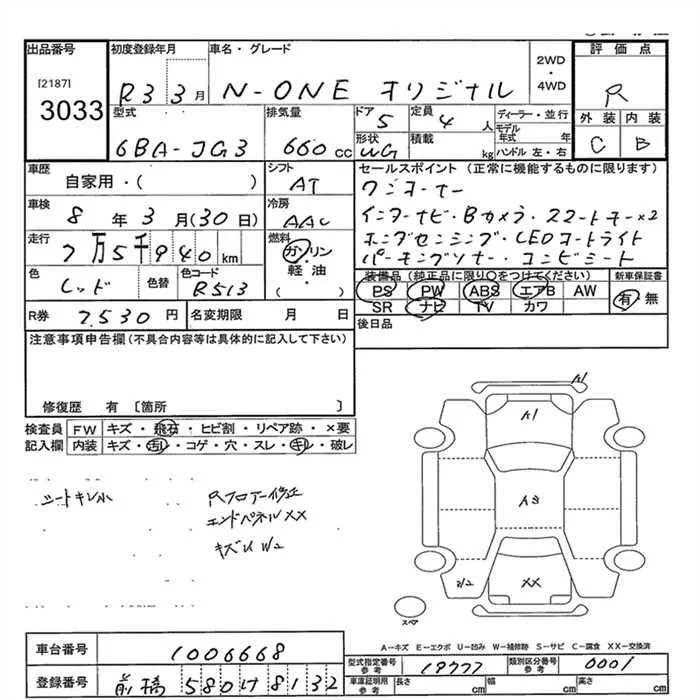 出品番号 初度登録年月 車名・グレード 評価点
[2187]
3033
R3 3月 N-ONE オリジナル 2WD・4WD R
型式 排気量 ドア 定員 ディーラー・並行 外装 内装
5 4人 モデル年式 年
6BA-JG3 660cc 形状 WG 積載 kg ハンドル 左・右 C B
車歴 シフト セールスポイント (正常に機能するものに限ります)
自家用・( ) AT ワンオーナー
車検 冷房
8年3月(30日) AAC インターナビ・Bカメラ・スマートキー×2
走行 燃料 ホンダセンシング・LEDコートライト
7万5千940km ガソリン・軽油・( ) パーキングソナー・コンビシート
色 色替 色コード 装備品 (純正品に限り○をつけてください) 新車保証書
レッド R513 PS PW ABS エアB AW 有・無
SR ナビ TV カワ
R券 7,530円 名変期限 月 日 後日品
注意事項申告欄 (不具合内容等は具体的に記入して下さい)
修復歴 有 〔箇所 〕
検査員 FW キズ・飛石・ヒビ割・リペア跡・×要
記入欄 内装 キズ・汚レ・コゲ・穴・スレ・キレ・破レ
シートキレ小
Rフロアー修正
エンドパネルXX
キズU W2
A1
A1
A3
W2
XX
スペア
A-キズ E-エクボ U-凹み W-補修跡 S-サビ C-腐食 XX-交換済
車台番号 1006668
型式指定番号 参考 19777 類別区分番号 参考 0001
登録番号 前橋 580 8132
車庫証明用 参考 長さ cm 幅 cm 高さ cm